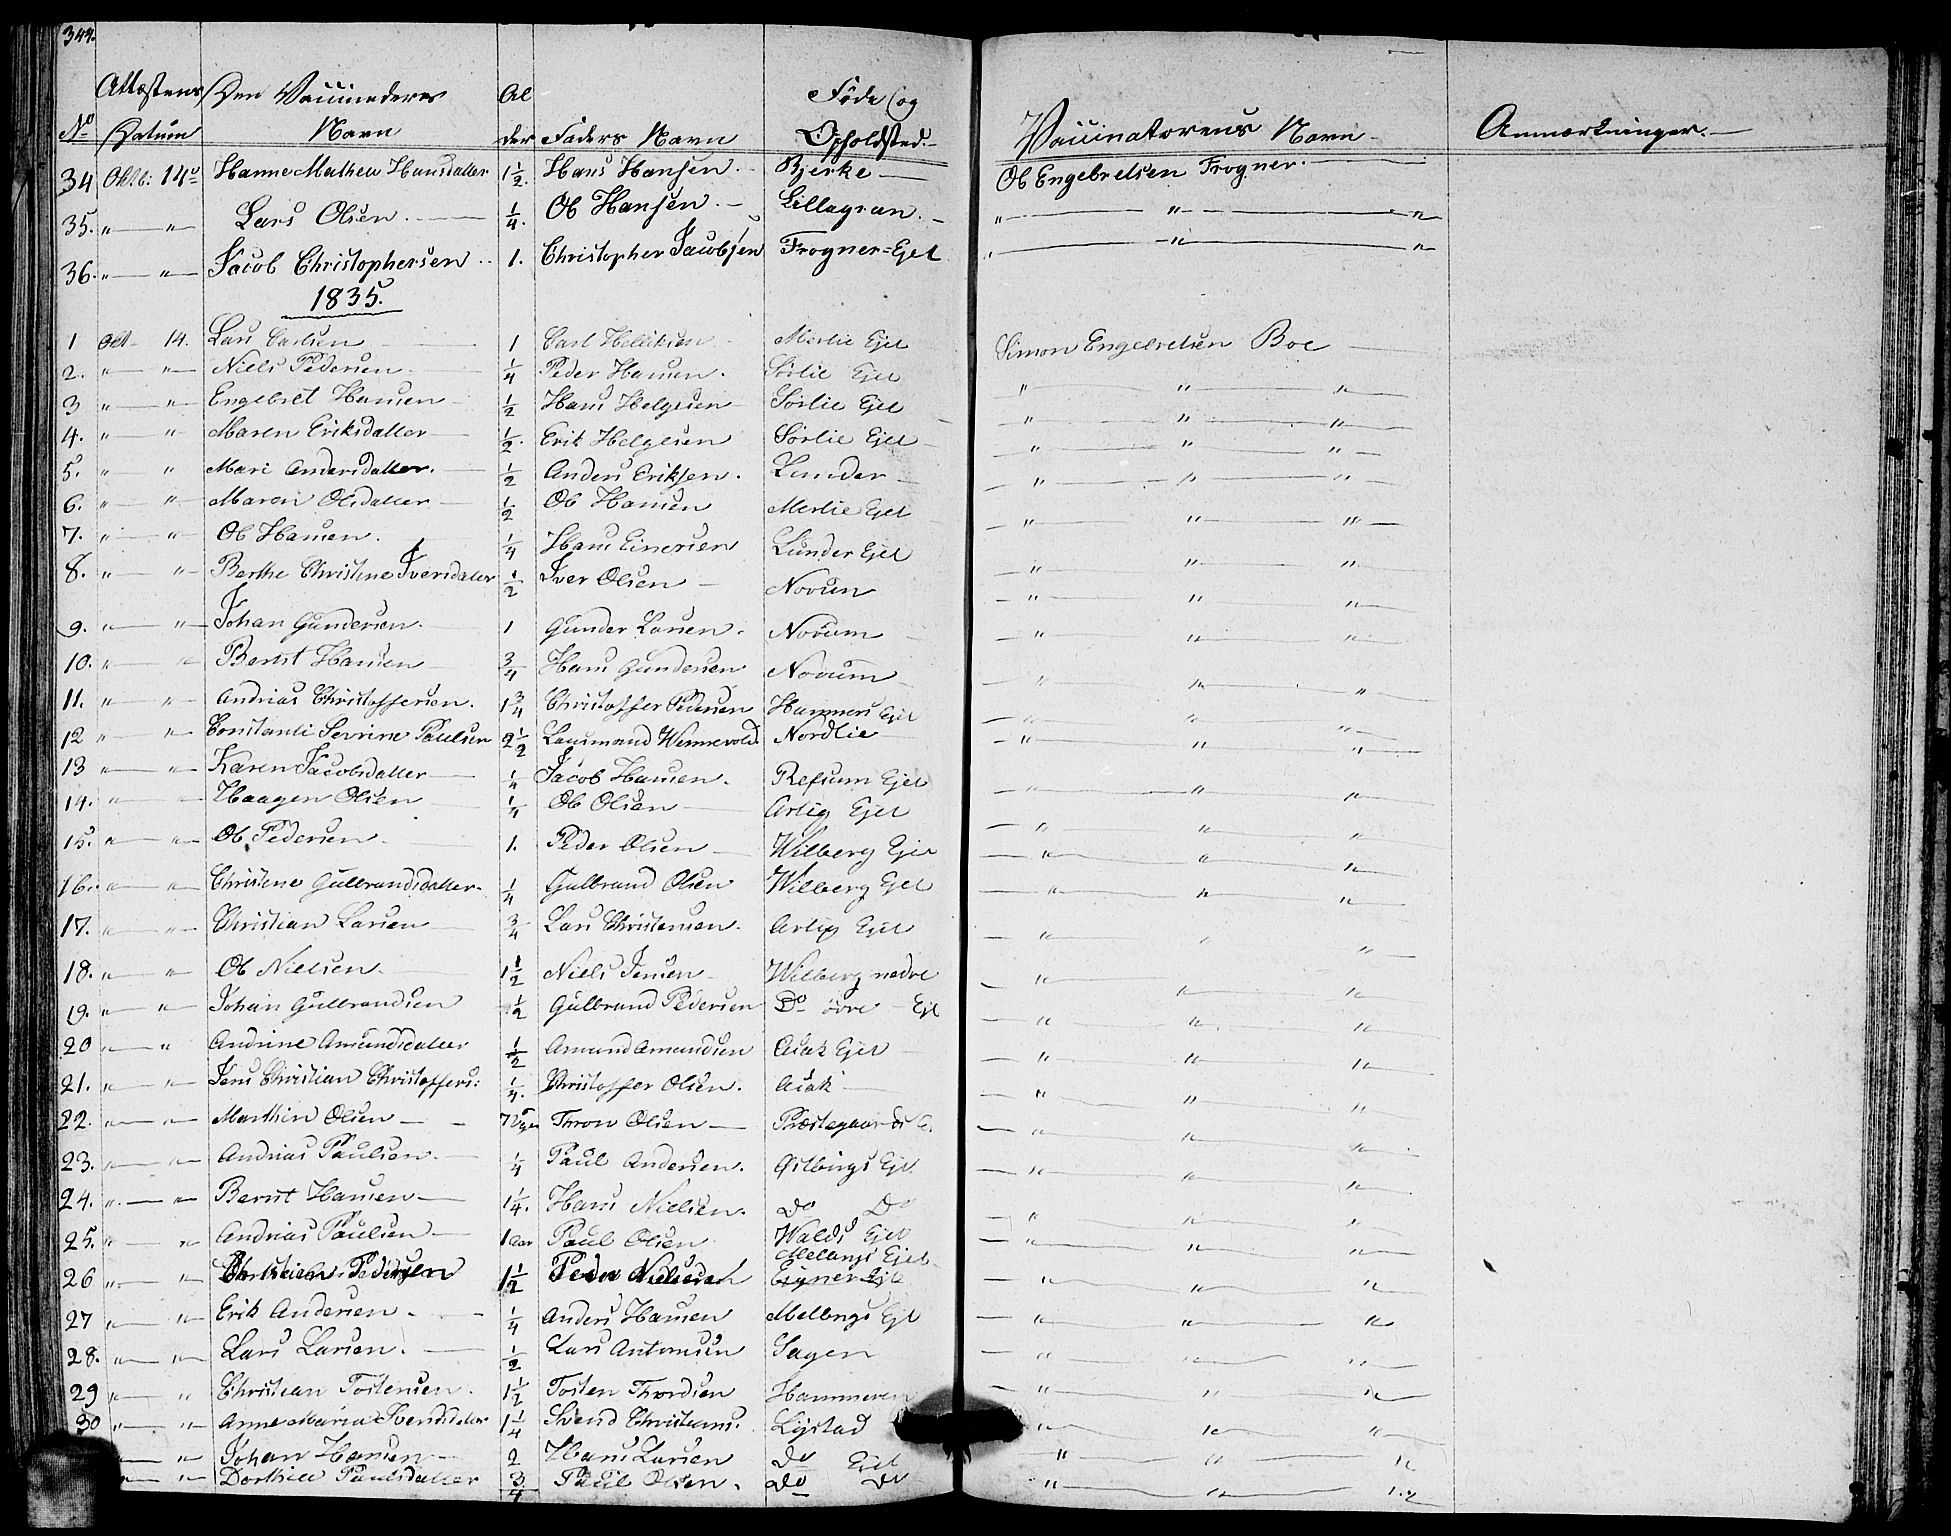 344.
Attestens Den Vaccineredes Al Føde og
No Datum Navn der Faders Navn Opholdsted. Vaccinatorens Navn Anmærkninger.
34 Oktb: 14de Hanne Mathea Hansdatter 1 1/2. Hans Hansen. Bjerke Ole Engebretsen Frogner.
35. " " Lars Olsen. 1/4. Ole Hansen. Lillegran. " " "
36. " " Jacob Christophersen 1. Christopher Jacobsen Frogner-Ejet " " "
1835.
1 Okt 14. Lars Carlsen 1 Carl Helliksen Merlie Ejet Simon Engebretsen Boe
2. " " Niels Pedersen 1/4 Peder Hansen. Sørlie Ejet " " "
3 " " Engebret Hansen 1/2 Hans Helgesen Sørlie Ejet " " "
4. " " Maren Eriksdatter 1/2. Erik Helgesen Sørlie Ejet " " "
5. " " Mari Andersdatter. 1/2 Anders Eriksen. Lunder " " "
6. " " Maren Olsdatter 1/2 Ole Hansen Merlie Ejet " " "
7. " " Ole Hansen. 1/4 Hans Einersen Lunder Ejet " " "
8. " " Berthe Christine Iversdatter 1/2 Iver Olsen Novum " " "
9. " " Johan Gundersen. 1 Gunder Larsen. Novum " " "
10. " " Bernt Hansen 3/4 Hans Gundersen Novum " " "
11. " " Andrias Christoffersen. 1 3/4 Christoffer Pedersen Hammers Ejet " " "
12 " " Constanti Sevrine Paulsen 2 1/2 Lensmand Wennevold Nordlie " " "
13 " " Karen Jacobsdatter 1/4 Jacob Hansen. Refsum Ejet " " "
14. " " Haagen Olsen 1/4 Ole Olsen Arlig Ejet " " "
15. " " Ole Pedersen 1. Peder Olsen Wilberg Ejet " " "
16. " " Christene Gulbrandsdatter. 1/4 Gulbrand Olsen Wilberg Ejet " " "
17. " " Christian Larsen 3/4 Lars Christensen. Arlig Ejet " " "
18. " " Ole Nielsen 1 1/2 Niels Jensen Wilberg nedre " " "
19. " " Johan Gulbrandsen 1/2 Gulbrand Pedersen Do øvre Ejt " " "
20 " " Andrine Amundsdatter 1/2 Amund Amundsen Asak Ejet " " "
21. " " Jens Christian Christoffers: 1/4. Christoffer Olsen. Asak " " "
22. " " Marthin Olsen 7 Uger Thron Olsen Præstegaards E. " " "
23. " " Andrias Paulsen 1/4 Paul Andersen. Østbyes Ejt. " " "
24. " " Bernt Hansen 1 1/4. Hans Nielsen. Do Do " " "
25. " " Andrias Paulsen 1 Aar Paul Olsen Walds Ejet " " "
Melbyes Ejet
26 " " Christian Pedersen 1 1/2 Peder Nielsen " " "
27 " " Erik Andersen 1/4 Anders Hansen Melbyes Ejt " " "
28. " " Lars Larsen. 1/2 Lars Antonsen Sagen " " "
29 " " Christian Tostensen. 1 1/2 Tosten Thordsen Hammeren " " "
30 " " Anne Maria Svendsdatter 1 1/4 Svend Christians. Lystad " " "
" " Johan Hansen 2 Hans Larsen Do Ejet " " "
" " Dorthea Paulsdatter 3/4 Paul Olsen. Do Do " " "